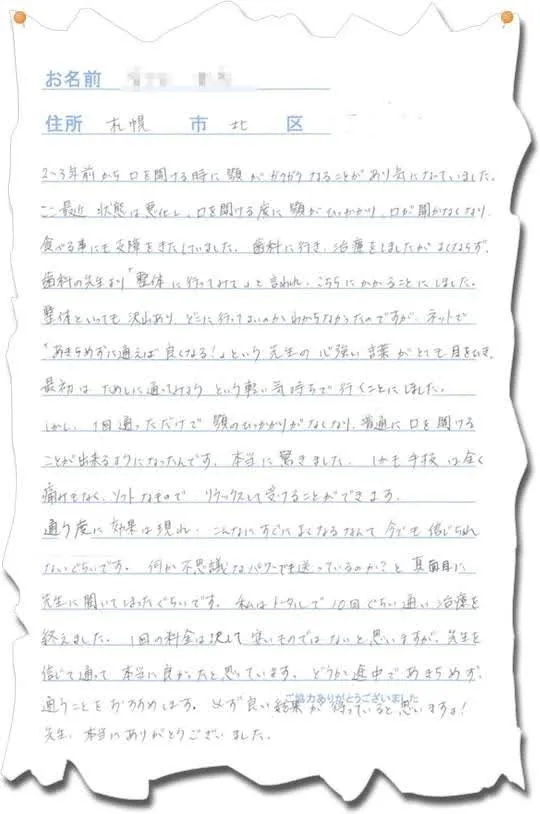 お名前
住所 札幌 市 北 区
2〜3年前から口を開ける時に顎がガクガクなることがあり気になっていました。
ここ最近 状態は悪化し、口を開ける度に顎がひっかかり、口が開かなくなり、
食べる事にも支障をきたしていました。歯科に行き、治療をしましたがよくならず、
歯科の先生より「整体に行ってみて」と言われ、こちらにかかることにしました。
整体といっても沢山あり、どこに行ってよいのかわからなかったのですが、ネットで
「あきらめずに通えば良くなる!」という先生の心強い言葉がとても目をひき、
最初はためしに通ってみようという軽い気持ちで行くことにしました。
しかし、1回通っただけで顎のひっかかりがなくなり、普通に口を開ける
ことが出来るようになったんです。本当に驚きました。しかも手技は全く
痛みもなく、ソフトなもので リラックスして受けることができます。
通う度に効果は現れ、こんなにすぐによくなるなんて今でも信じられ
ないぐらいです。何か不思議なパワーでも送っているのか?と真面目に
先生に聞いてしまったぐらいです。私はトータルで10回ぐらい通い治療を
終えました。1回の料金は決して安いものではないと思いますが、先生を
信じて通って本当に良かったと思っています。どうか途中であきらめず、
通うことをおすすめします。必ず良い結果が待っていると思いますよ!
ご協力ありがとうございました
先生、本当にありがとうございました。